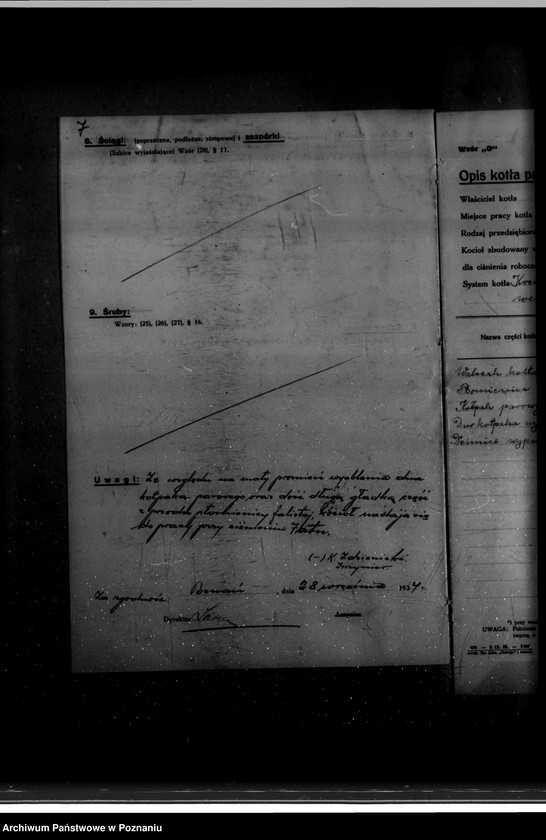 7
8. Ściągi: (poprzeczne, podłużne, stropowe) i zezpórki
(Szkice wyjaśniające) Wzór (28), § 17.
9. Śruby:
Wzory: (25), (26), (27), § 16.
Uwagi: Ze względu na mały promień wyoblenia dna
kołpaka parowego oraz dość długą gładką część
z przodu płomienicy falistej, kocioł nadaje się
do pracy przy ciśnieniu 7 atn.
(-) K. Zdzienicki
Inżynier
Za zgodność Poznań, dnia 28 września 1934 r.
Dyrektor
Wzór „G"
Opis kotła pa
Właściciel kotła
Miejsce pracy kotła
Rodzaj przedsiębior
Kocioł zbudowany
dla ciśnienia robocz
System kotła
Nazwa części kotł
Walczak kotła
Płomienica
Kołpak parowy
Dno kołpaka
Dennica
*) przy
UWAGA: Położenie
Archiwum Państwowe w Poznaniu